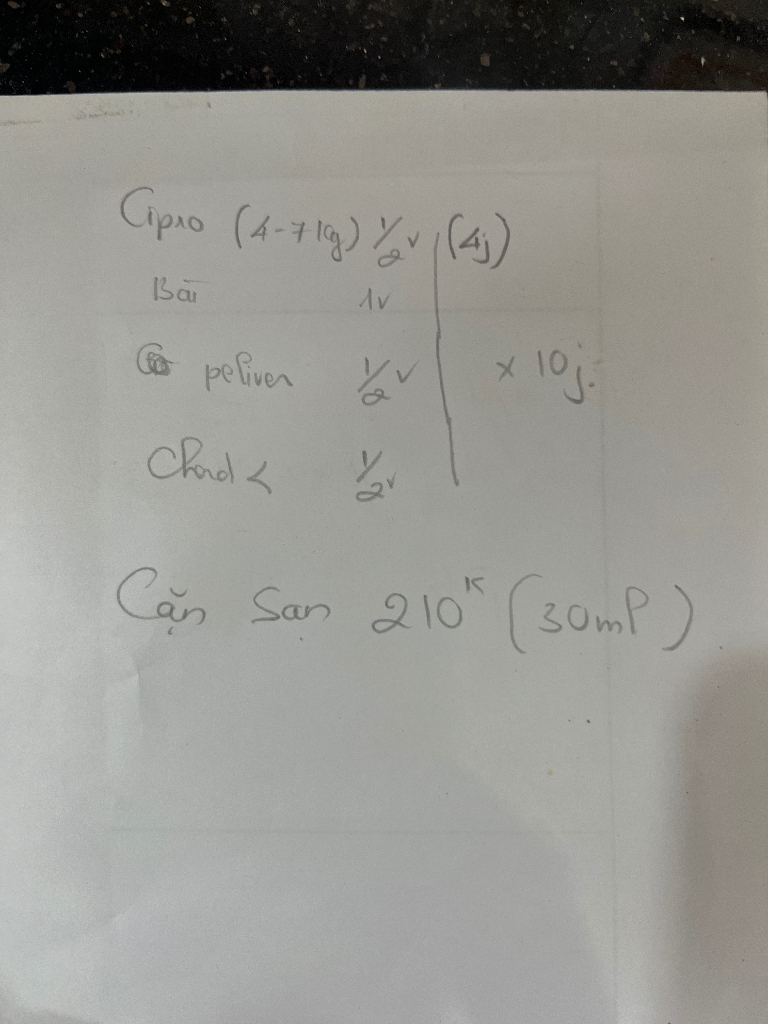 Cipro (4-7kg) 1/2 v (4j)
Bài 1v
peliver 1/2 v x 10j.
1/2 v
Cặn Sạn 210K (30ml)